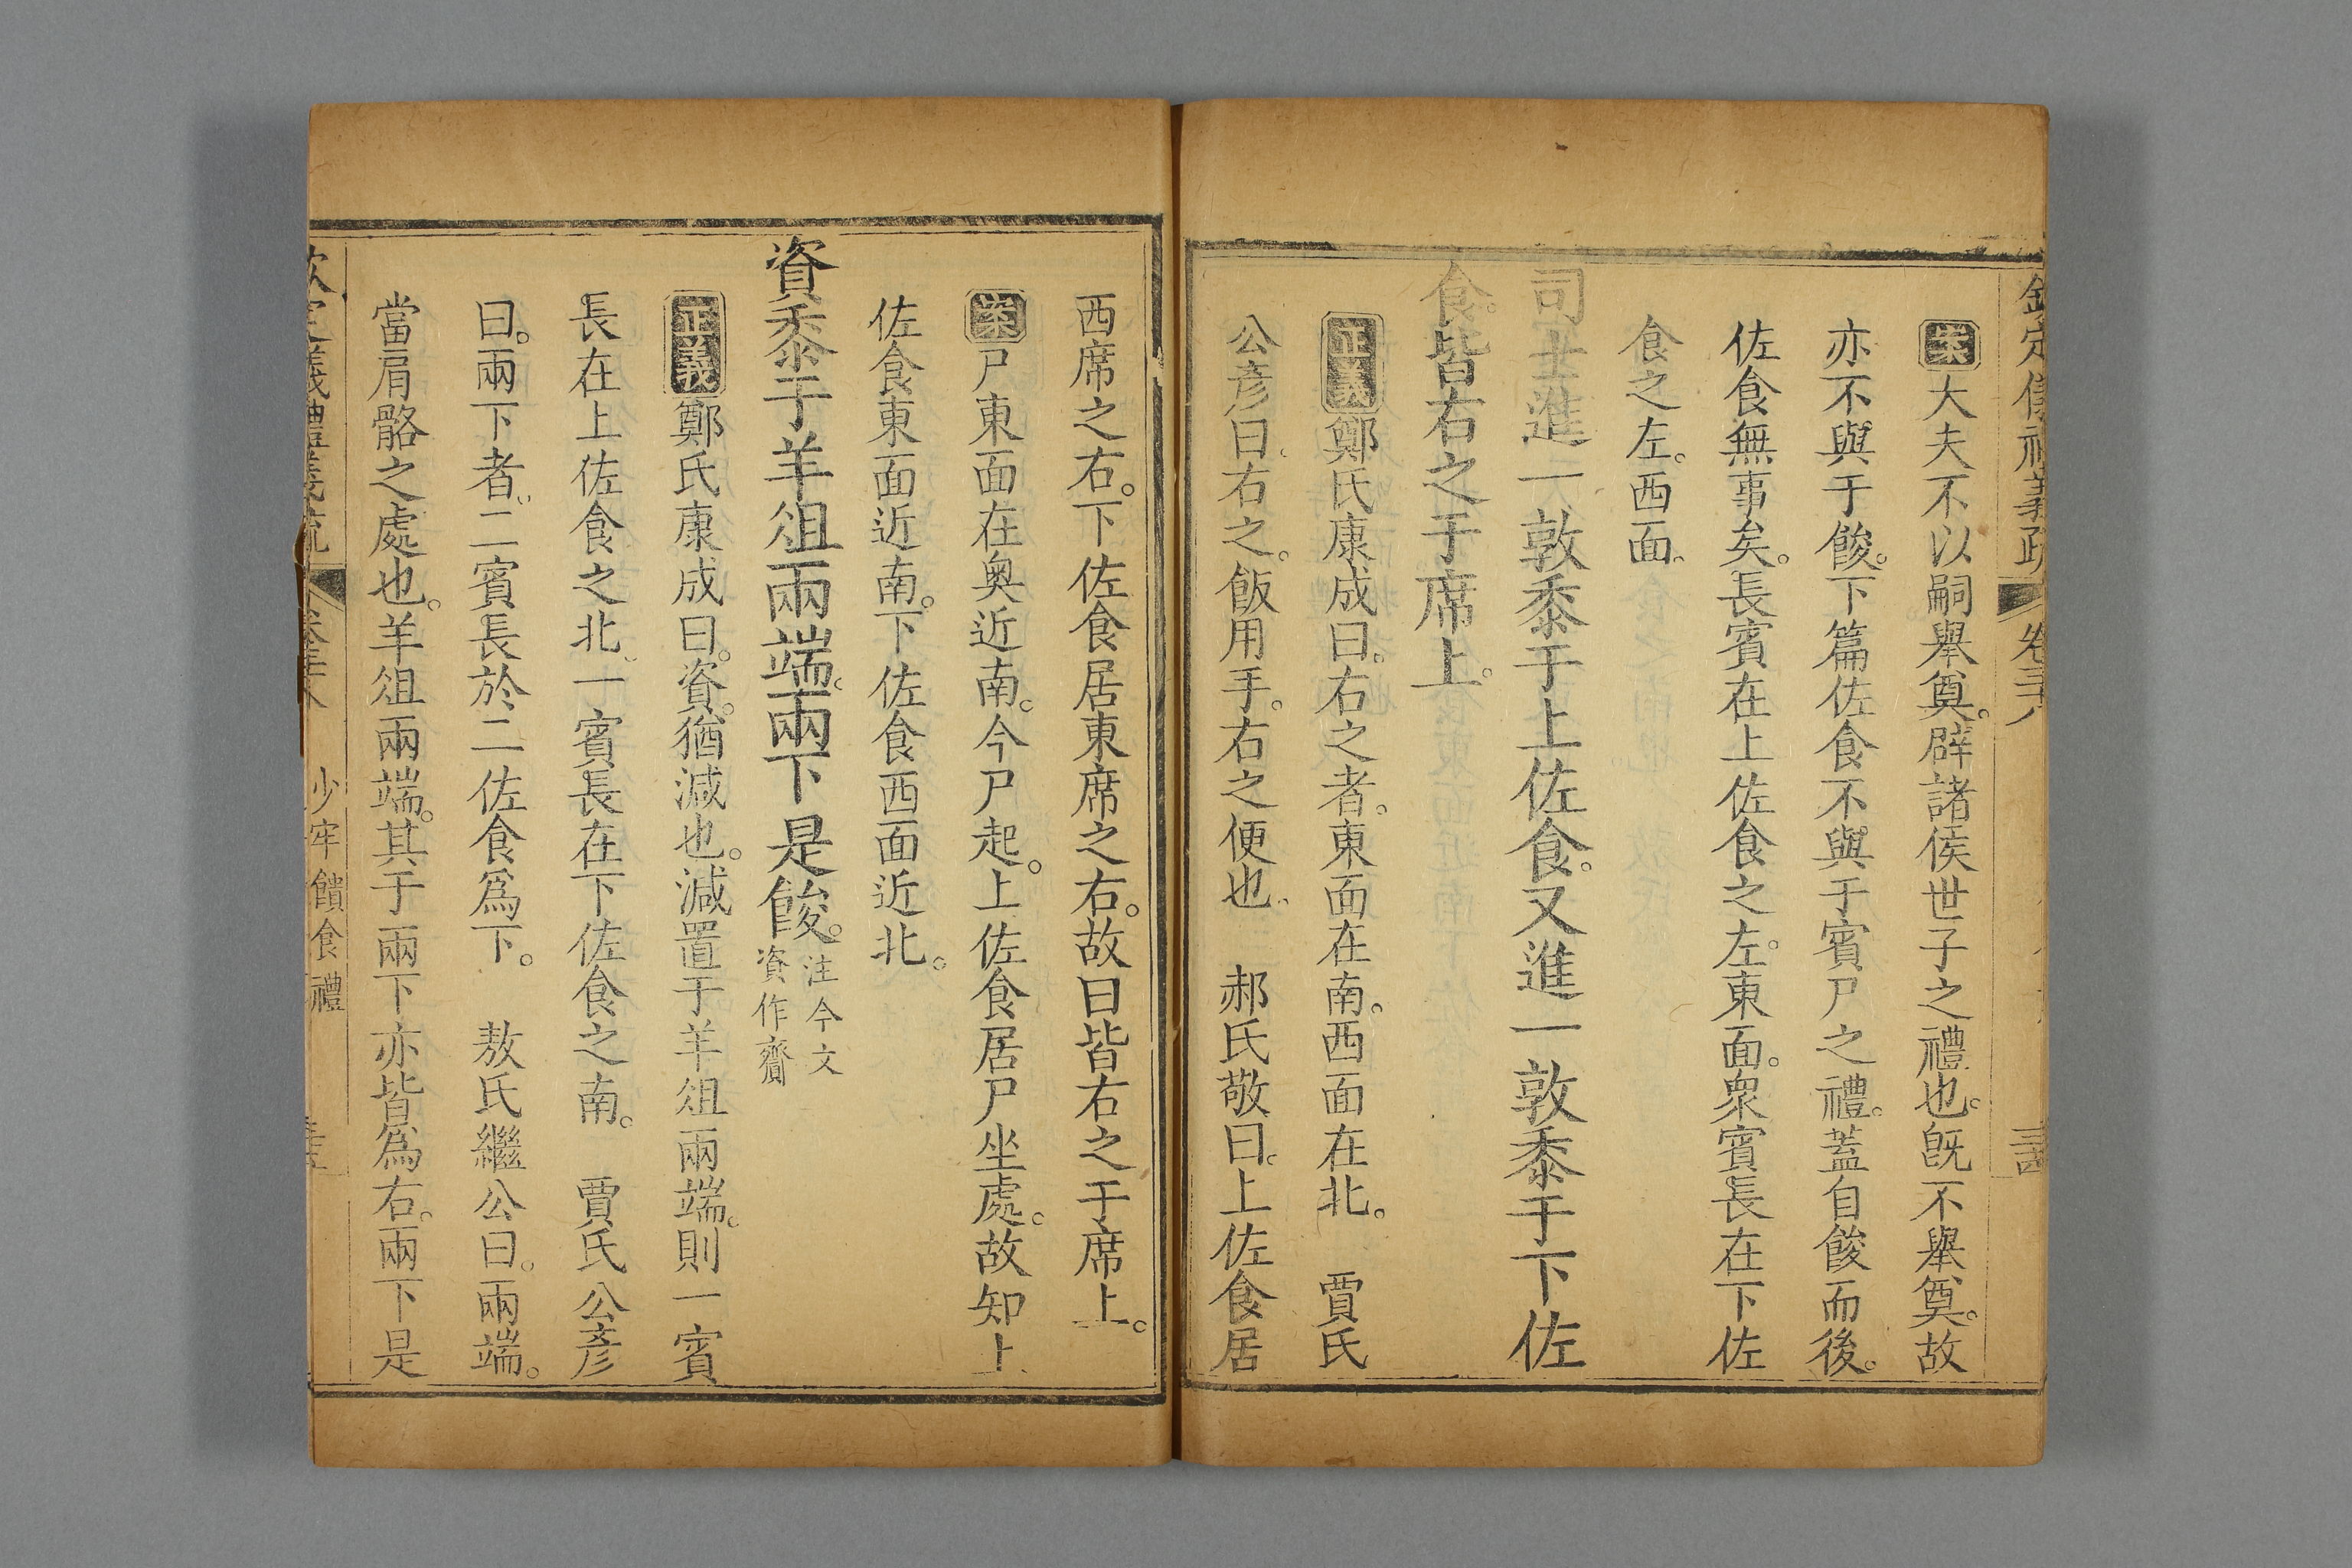 欽定儀禮義疏 卷三十八
案大夫不以嗣舉奠。辟諸侯世子之禮也。旣不舉奠。故
亦不與于餕。下篇佐食不與于賓尸之禮。蓋自餕而後。
佐食無事矣。長賓在上佐食之左。東面。衆賓長在下佐
食之左。西面。
司士進一敦黍于上佐食。又進一敦黍于下佐
食。皆右之于席上。
正義鄭氏康成曰。右之者。東面在南。西面在北。 賈氏
公彦曰。右之。飯用手。右之便也。 郝氏敬曰。上佐食居
西席之右。下佐食居東席之右。故曰皆右之于席上。
案尸東面在奥近南。今尸起。上佐食居尸坐處。故知上
佐食東面近南。下佐食西面近北。
資黍于羊俎兩端。兩下是餕。注今文資作齎
正義鄭氏康成曰。資。猶減也。減置于羊俎兩端。則一賓
長在上佐食之北。一賓長在下佐食之南。 賈氏公彦
曰。兩下者。二賓長於二佐食爲下。 敖氏繼公曰。兩端。
當肩骼之處也。羊俎兩端。其于兩下亦皆爲右。兩下是
欽定儀禮義疏 卷三十八 少牢饋食禮